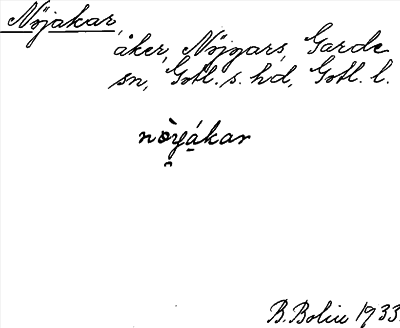 Nöjakar,
åker, Nöjgars, Garde
sn, Gotl. s. hd, Gotl. l.
B. Bolin 1933.